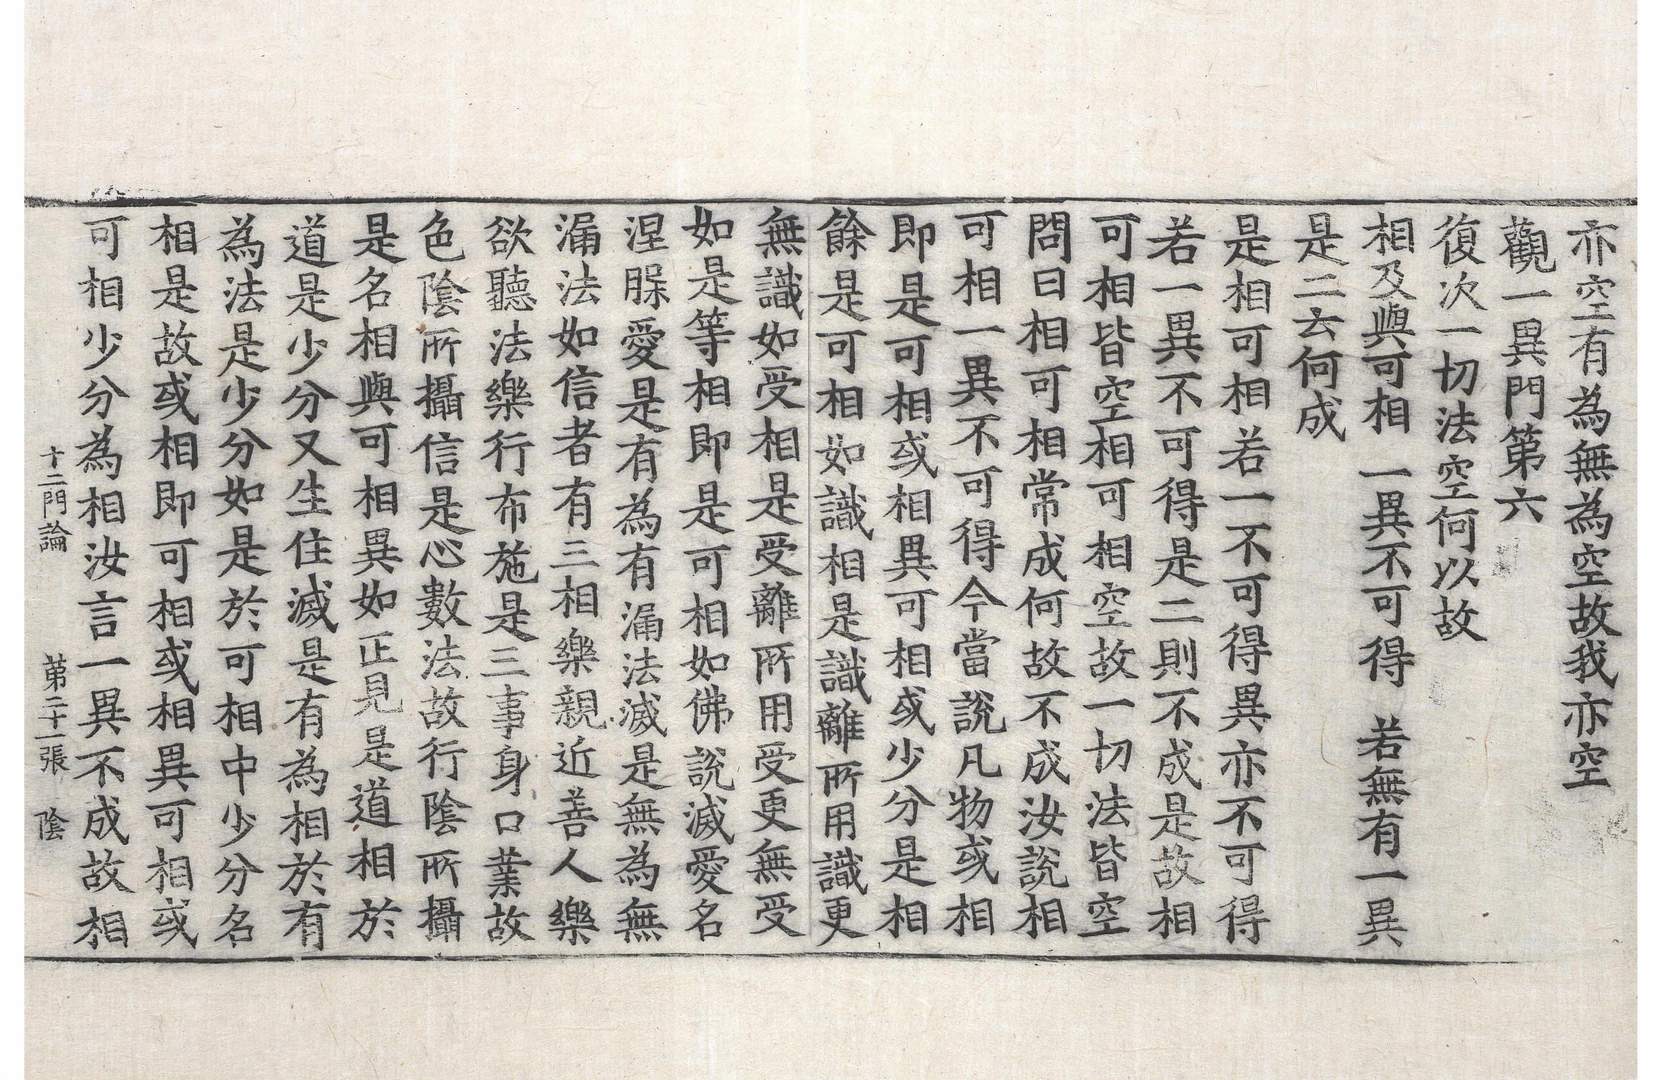 亦空有為無為空故我亦空
觀一異門第六
復次一切法空何以故
相及與可相 一異不可得 若無有一異
是二云何成
是相可相若一不可得異亦不可得
若一異不可得是二則不成是故相
可相皆空相可相空故一切法皆空
問曰相可相常成何故不成汝說相
可相一異不可得今當說凡物或相
即是可相或相異可相或少分是相
餘是可相如識相是識離所用識更
無識如受相是受離所用受更無受
如是等相即是可相如佛說滅愛名
涅槃愛是有為有漏法滅是無為無
漏法如信者有三相樂親近善人樂
欲聽法樂行布施是三事身口業故
色陰所攝信是心數法故行陰所攝
是名相與可相異如正見是道相於
道是少分又生住滅是有為相於有
為法是少分如是於可相中少分名
相是故或相即可相或相異可相或
可相少分為相汝言一異不成故相
十二門論 第二十一張 陰